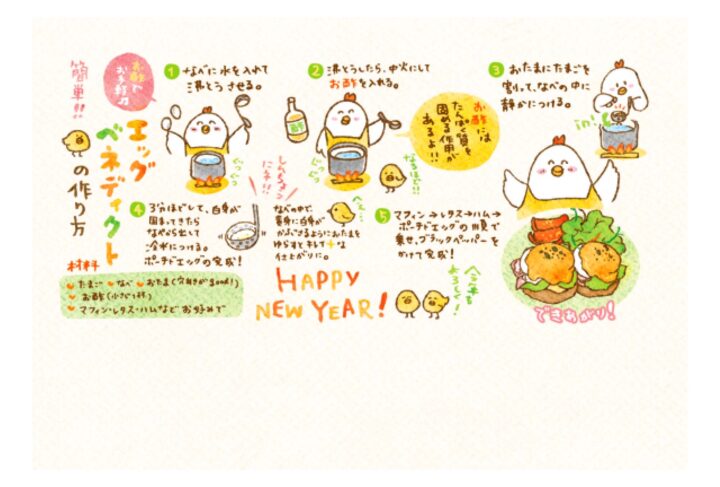 簡単!!
お酢で
お手軽な
エッグ
ベネディクト
の作り方
1 なべに水を入れて
沸とうさせる。
ぐつ
ぐつ
2 沸とうしたら、中火にして
お酢を入れる。
酢
お酢には
たんぱく質を
固める作用が
あるよ!!
なるほど!!
3 おたまにたまごを
割って、なべの中に
静かにつける。
in!
4 3分ほどして、白身が
固まってきたら
なべから出して
冷水につける。
ポーチドエッグの完成!
なべの中で、
黄身に白身が
かぶさるようにおたまを
ゆらすとキレイな
仕上がりに。
へぇ〜
5 マフィン→レタス→ハム→
ポーチドエッグの順で
乗せ、ブラックペッパーを
かけて完成!
できあがり!
材料
たまご なべ おたま(穴あきがgood!)
お酢(小さじ1杯)
マフィン・レタス・ハムなど お好みで
HAPPY
NEW YEAR!
今年も
よろしく!